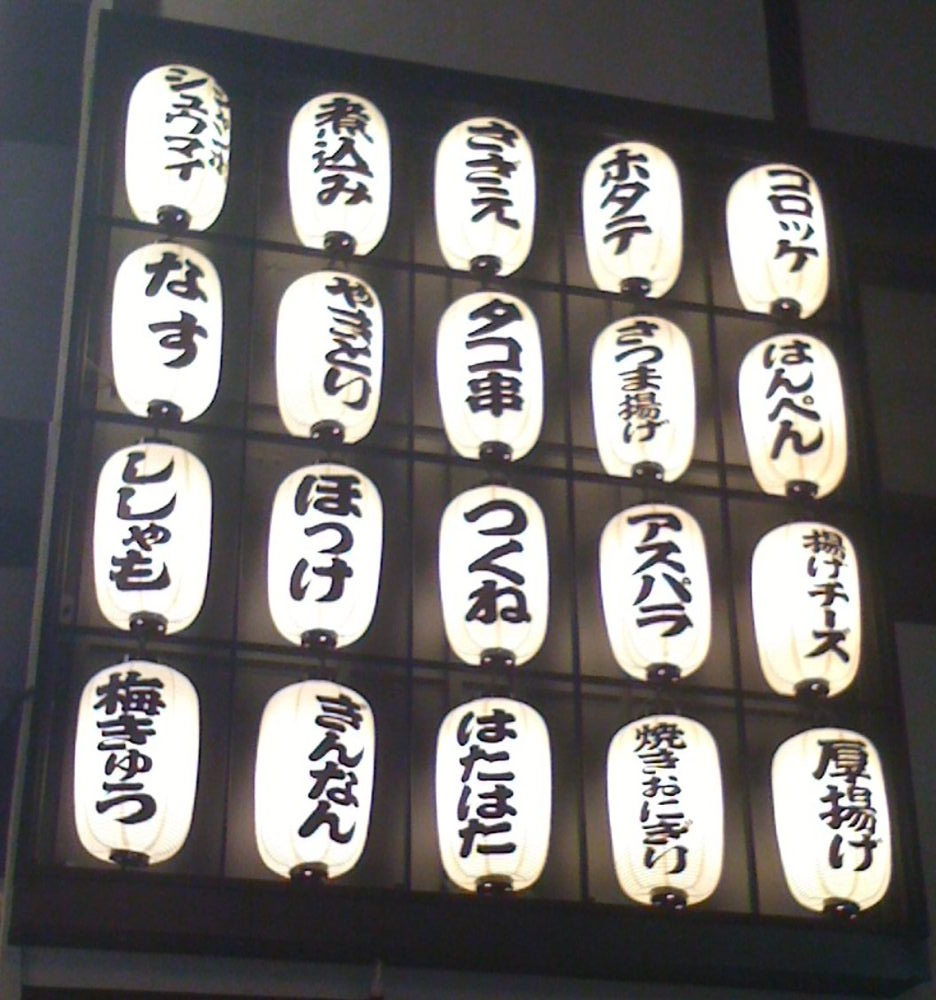 ジャンボ
シュウマイ
煮込み
さざえ
ホタテ
コロッケ
なす
やきとり
タコ串
さつま揚げ
はんぺん
ししゃも
ほっけ
つくね
アスパラ
揚げチーズ
梅きゅう
ぎんなん
はたはた
焼きおにぎり
厚揚げ